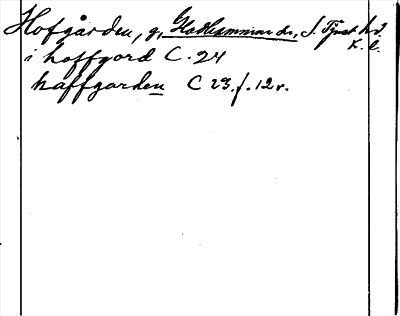 Hofgården, g, Gladhammar sn, S. Tjust hd.
K. l.
i hoffgord C. 24
haffgarden C 23. f. 12 v.